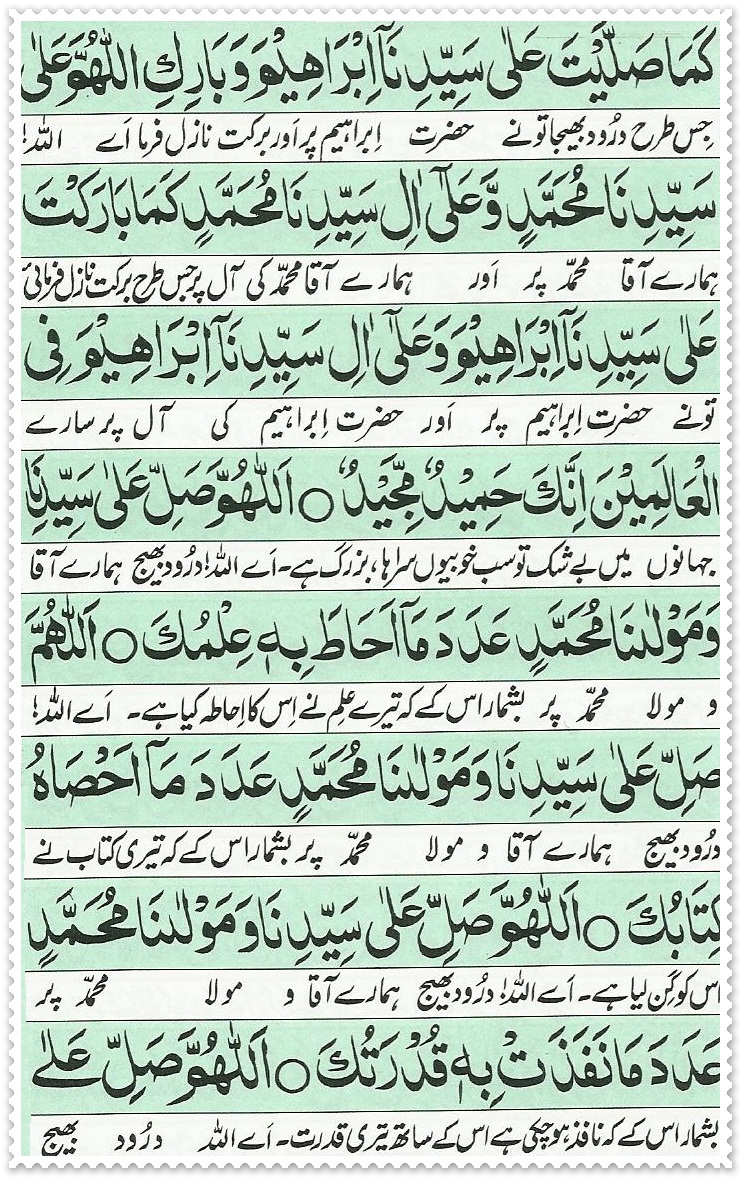 كَمَا صَلَّيْتَ عَلٰى سَيِّدِنَآ اِبْرَاهِيْمَ وَبَارِكِ اللّٰهُمَّ عَلٰى
جس طرح درُود بھیجا تونے حضرت اِبراہیم پر اَور برکت نازل فرما اَے اللہ!
سَيِّدِنَا مُحَمَّدٍ وَّعَلٰٓى اٰلِ سَيِّدِنَا مُحَمَّدٍ كَمَا بَارَكْتَ
ہمارے آقا محمّد پر اَور ہمارے آقا محمّد کی آل پر جس طرح برکت نازل فرمائی
عَلٰى سَيِّدِنَآ اِبْرَاهِيْمَ وَعَلٰٓى اٰلِ سَيِّدِنَآ اِبْرَاهِيْمَ فِى
تونے حضرت اِبراہیم پر اَور حضرت اِبراہیم کی آل پر سارے
الْعَالَمِيْنَ اِنَّكَ حَمِيْدٌ مَّجِيْدٌ ○ اَللّٰهُمَّ صَلِّ عَلٰى سَيِّدِنَا
جہانوں میں بے شک تو سب خوبیوں سراہا، بزرگ ہے۔ اَے اللہ! درُود بھیج ہمارے آقا
وَمَوْلٰىنَا مُحَمَّدٍ عَدَدَ مَآ اَحَاطَ بِهٖ عِلْمُكَ ○ اَللّٰهُمَّ
و مولا محمّد پر بشمار اس کے کہ تیرے علم نے اِس کا اِحاطہ کیا ہے۔ اَے اللہ!
صَلِّ عَلٰى سَيِّدِنَا وَمَوْلٰىنَا مُحَمَّدٍ عَدَدَ مَآ اَحْصَاهُ
درُود بھیج ہمارے آقا و مولا محمّد پر بشمار اس کے کہ تیری کتاب نے
كِتَابُكَ ○ اَللّٰهُمَّ صَلِّ عَلٰى سَيِّدِنَا وَمَوْلٰىنَا مُحَمَّدٍ
اس کو گِن لیا ہے۔ اَے اللہ! درُود بھیج ہمارے آقا و مولا محمّد پر
عَدَدَ مَا نَفَذَتْ بِهٖ قُدْرَتُكَ ○ اَللّٰهُمَّ صَلِّ عَلٰى
بشمار اس کے کہ نافذ ہو چکی ہے اس کے ساتھ تیری قدرت۔ اَے اللہ درُود بھیج